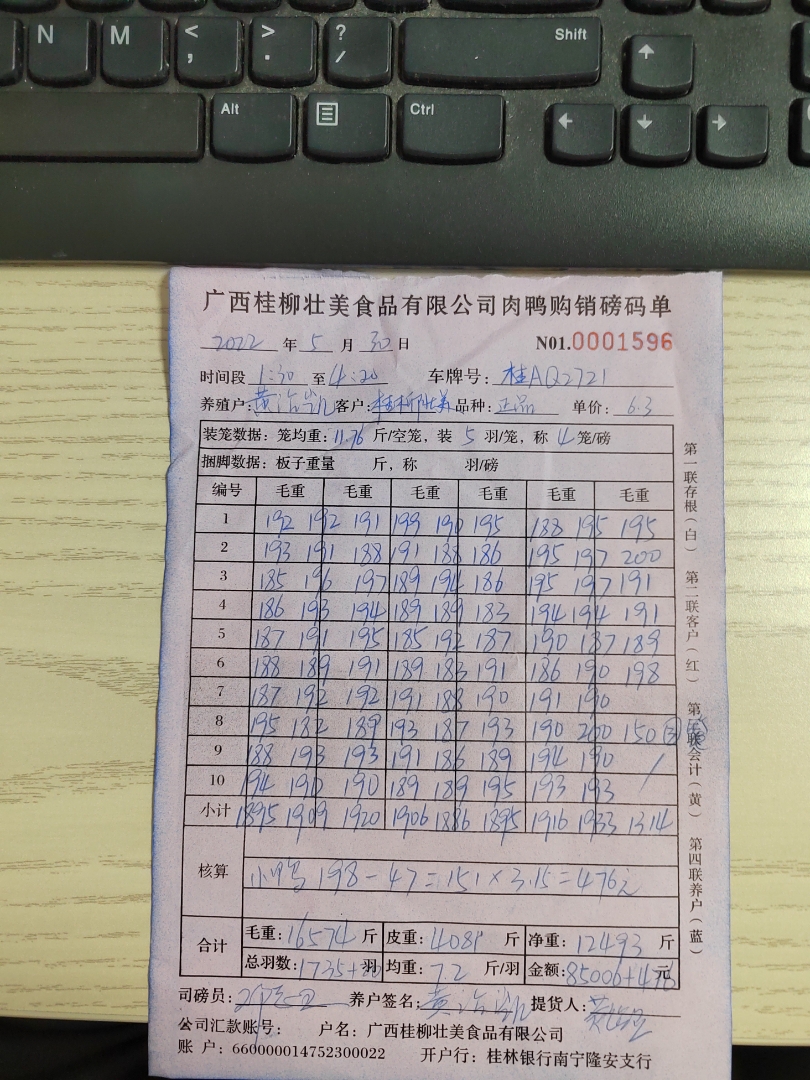 N M < , > . ? / Shift
Alt Ctrl
广西桂柳壮美食品有限公司肉鸭购销磅码单
2022 年 5 月 30 日 N01.0001596
时间段 1:30 至 4:20 车牌号: 桂AQ2721
养殖户: 黄治 客户: 桂柳壮美 品种: 正品 单价: 6.3
装笼数据: 笼均重: 11.76 斤/空笼, 装 5 羽/笼, 称 4 笼/磅
捆脚数据: 板子重量 斤, 称 羽/磅
编号 毛重 毛重 毛重 毛重 毛重 毛重
1 192 192 191 199 190 195 188 195 195
2 193 191 188 191 188 186 195 197 200
3 185 196 197 189 194 186 195 197 191
4 186 193 194 189 189 183 194 194 191
5 187 191 195 185 192 187 190 187 189
6 188 189 191 189 183 191 186 190 198
7 187 192 192 191 188 190 191 190
8 195 182 189 193 187 193 190 200 150 ③
9 188 193 193 191 186 189 194 190 /
10 194 190 190 189 189 195 193 193
小计 1895 1909 1920 1906 1886 1895 1916 1933 1314
核算 小鸭 198-47=151×3.15=476元
合计 毛重: 16574 斤 皮重: 4081 斤 净重: 12493 斤
总羽数: 1735+ 羽 均重: 7.2 斤/羽 金额: 85006+476 元
司磅员: 养户签名: 黄治 提货人:
公司汇款账号: 户名: 广西桂柳壮美食品有限公司
账 户: 660000014752300022 开户行: 桂林银行南宁隆安支行
第一联存根(白) 第二联客户(红) 第三联会计(黄) 第四联养户(蓝)